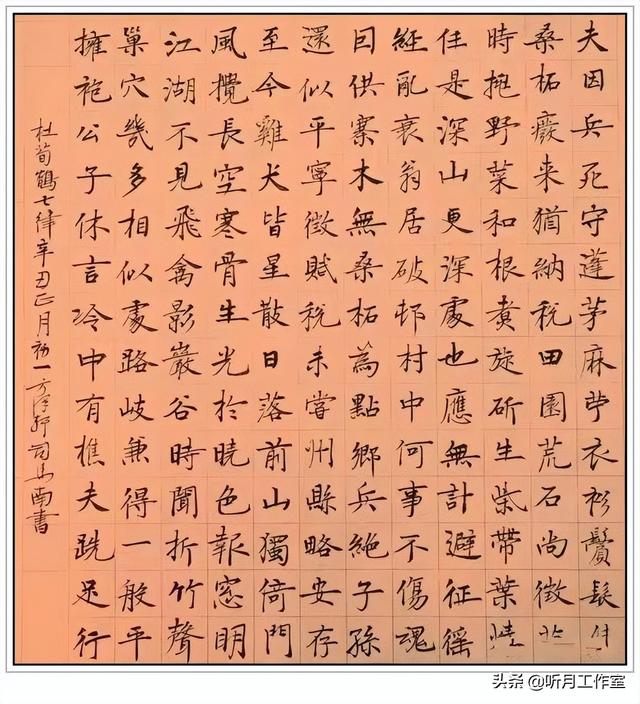 夫因兵死守蓬茅麻苧衣衫鬢髮
桑柘廢来猶納稅田園荒石尚徵
時挑野菜和根煮旋斫生柴帶葉燒
任是深山更深處也應無計避征徭
經亂衰翁居破邨村中何事不傷魂
因供寨木無桑柘為點鄉兵絕子孫
還似平寧徵賦稅未嘗州縣略安存
至今雞犬皆星散日落前山獨倚門
風攪長空寒骨生光於曉色報窓明
江湖不見飛禽影巖谷時聞折竹聲
巢穴幾多相似處路岐兼得一般平
擁袍公子休言冷中有樵夫跣足行
杜荀鶴七律辛丑正月初一司馬南書
头条 @听月工作室